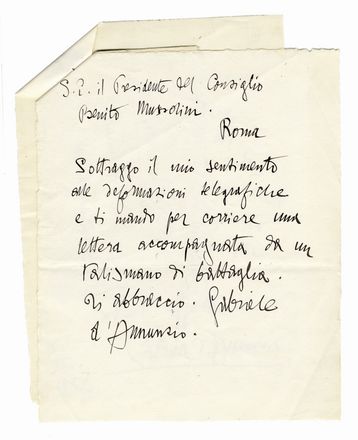 S. E. il Presidente del Consiglio
Benito Mussolini.
Roma
Sottraggo il mio sentimento
alle deformazioni telegrafiche
e ti mando per corriere una
lettera accompagnata da un
talismano di battaglia.
Ti abbraccio. Gabriele
d'Annunzio.